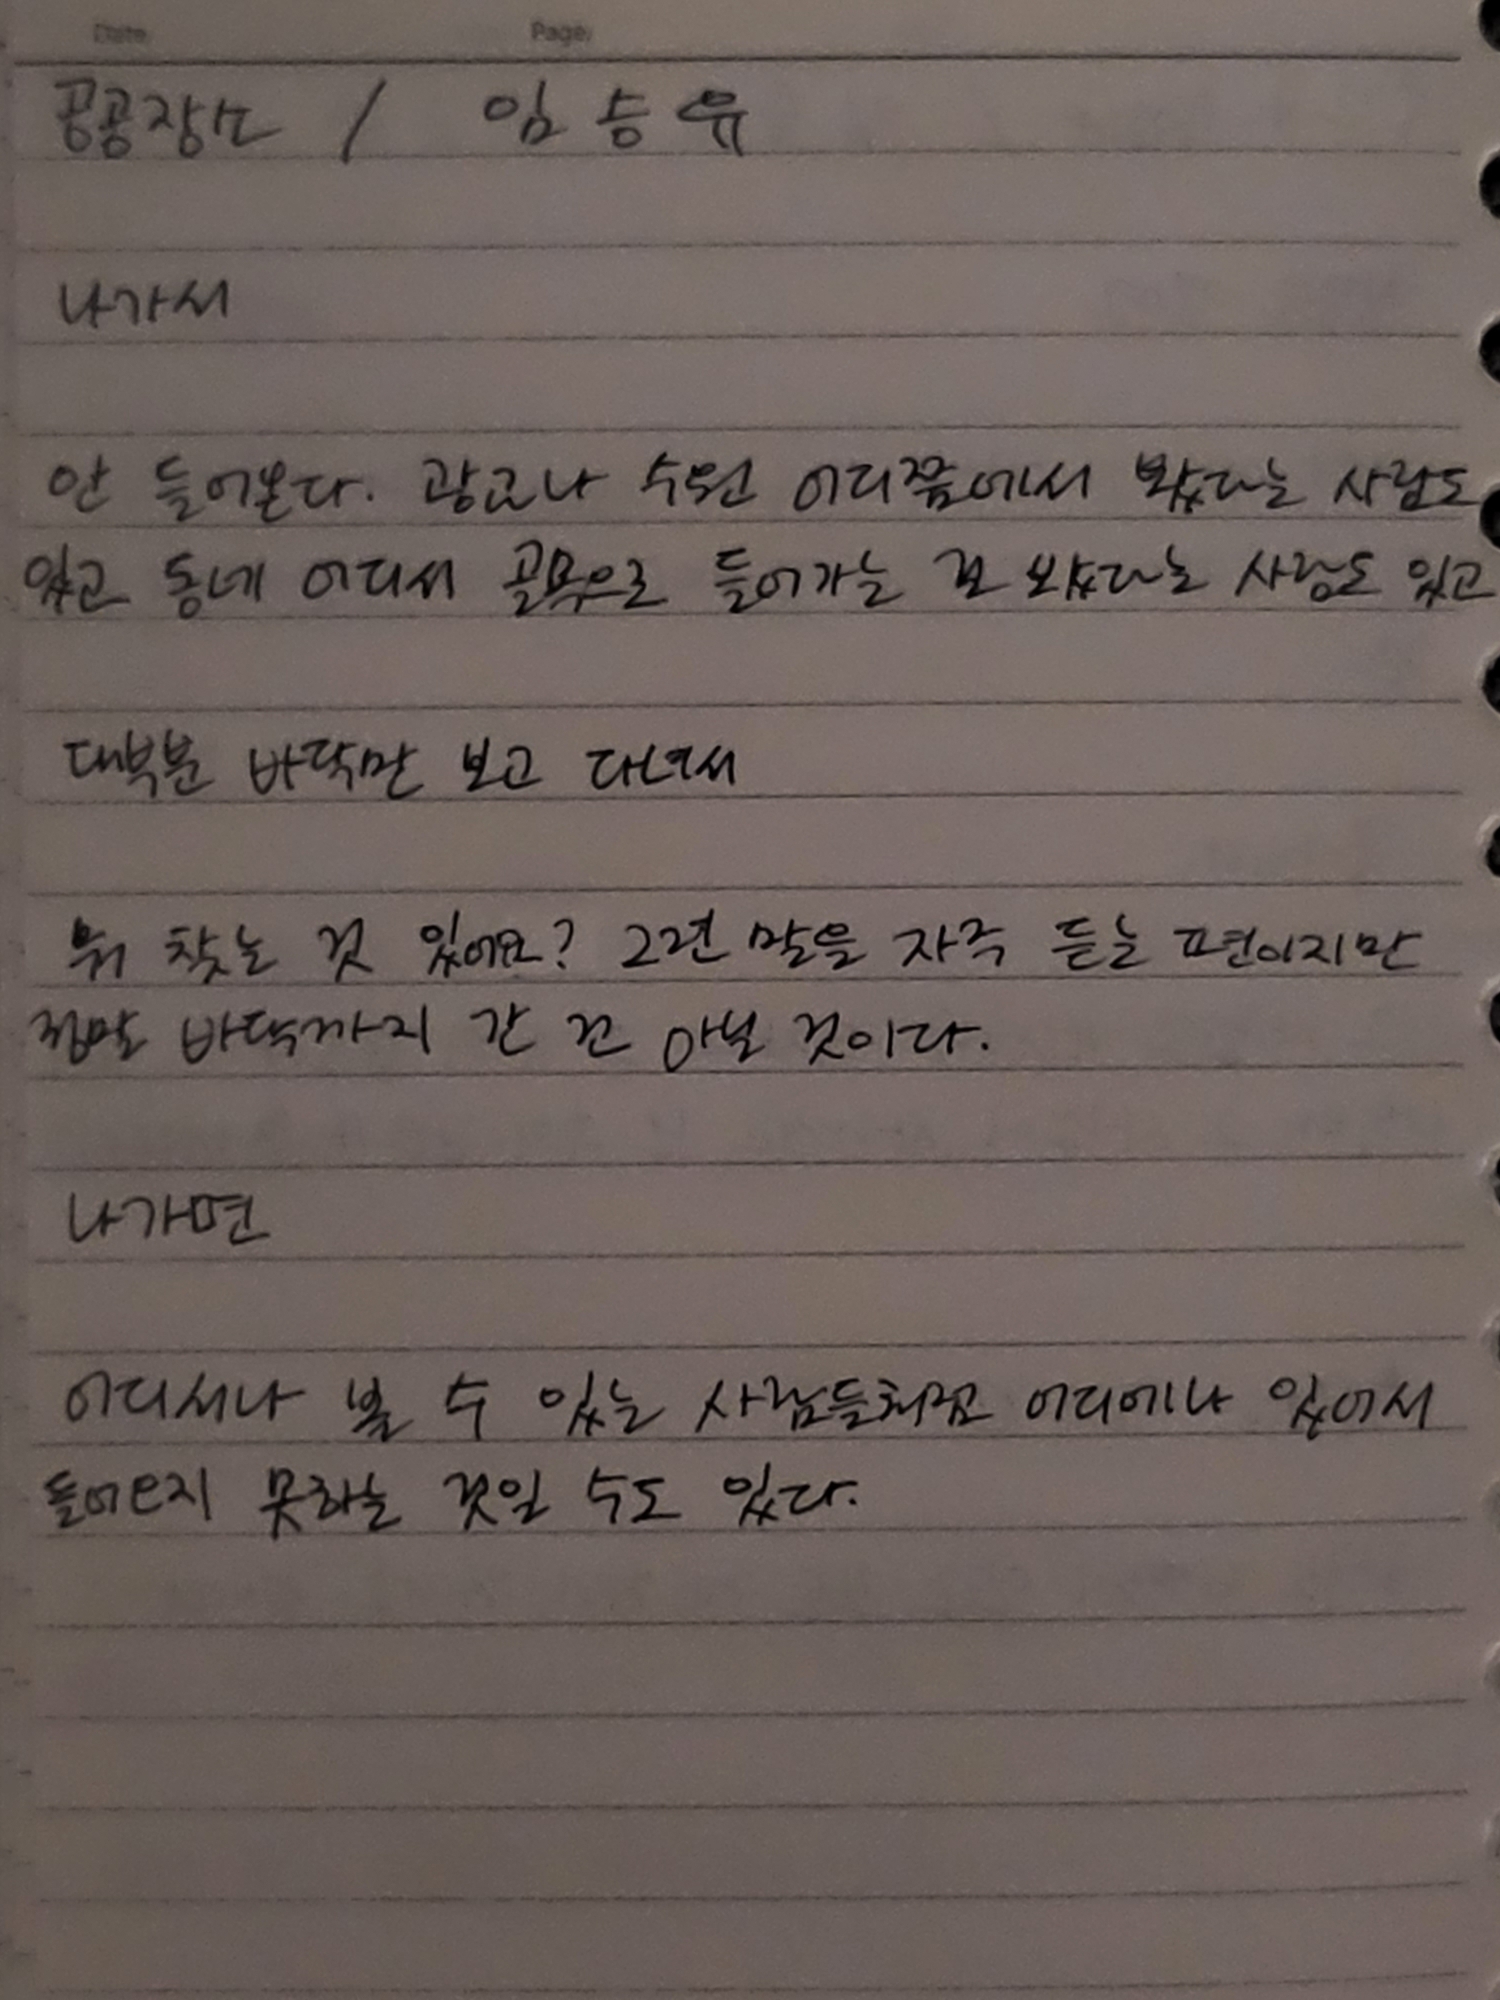 Date.
Page.
공공장소 / 임승유
나가서
안 들어온다. 광교나 수원 어디쯤에서 봤다는 사람도
있고 동네 어디서 골목으로 들어가는 걸 봤다는 사람도 있고
대부분 바닥만 보고 다녀서
뭐 찾는 것 있어요? 그런 말을 자주 듣는 편이지만
정말 바닥까지 간 건 아닐 것이다.
나가면
어디서나 볼 수 있는 사람들처럼 어디에나 있어서
들어오지 못하는 것일 수도 있다.